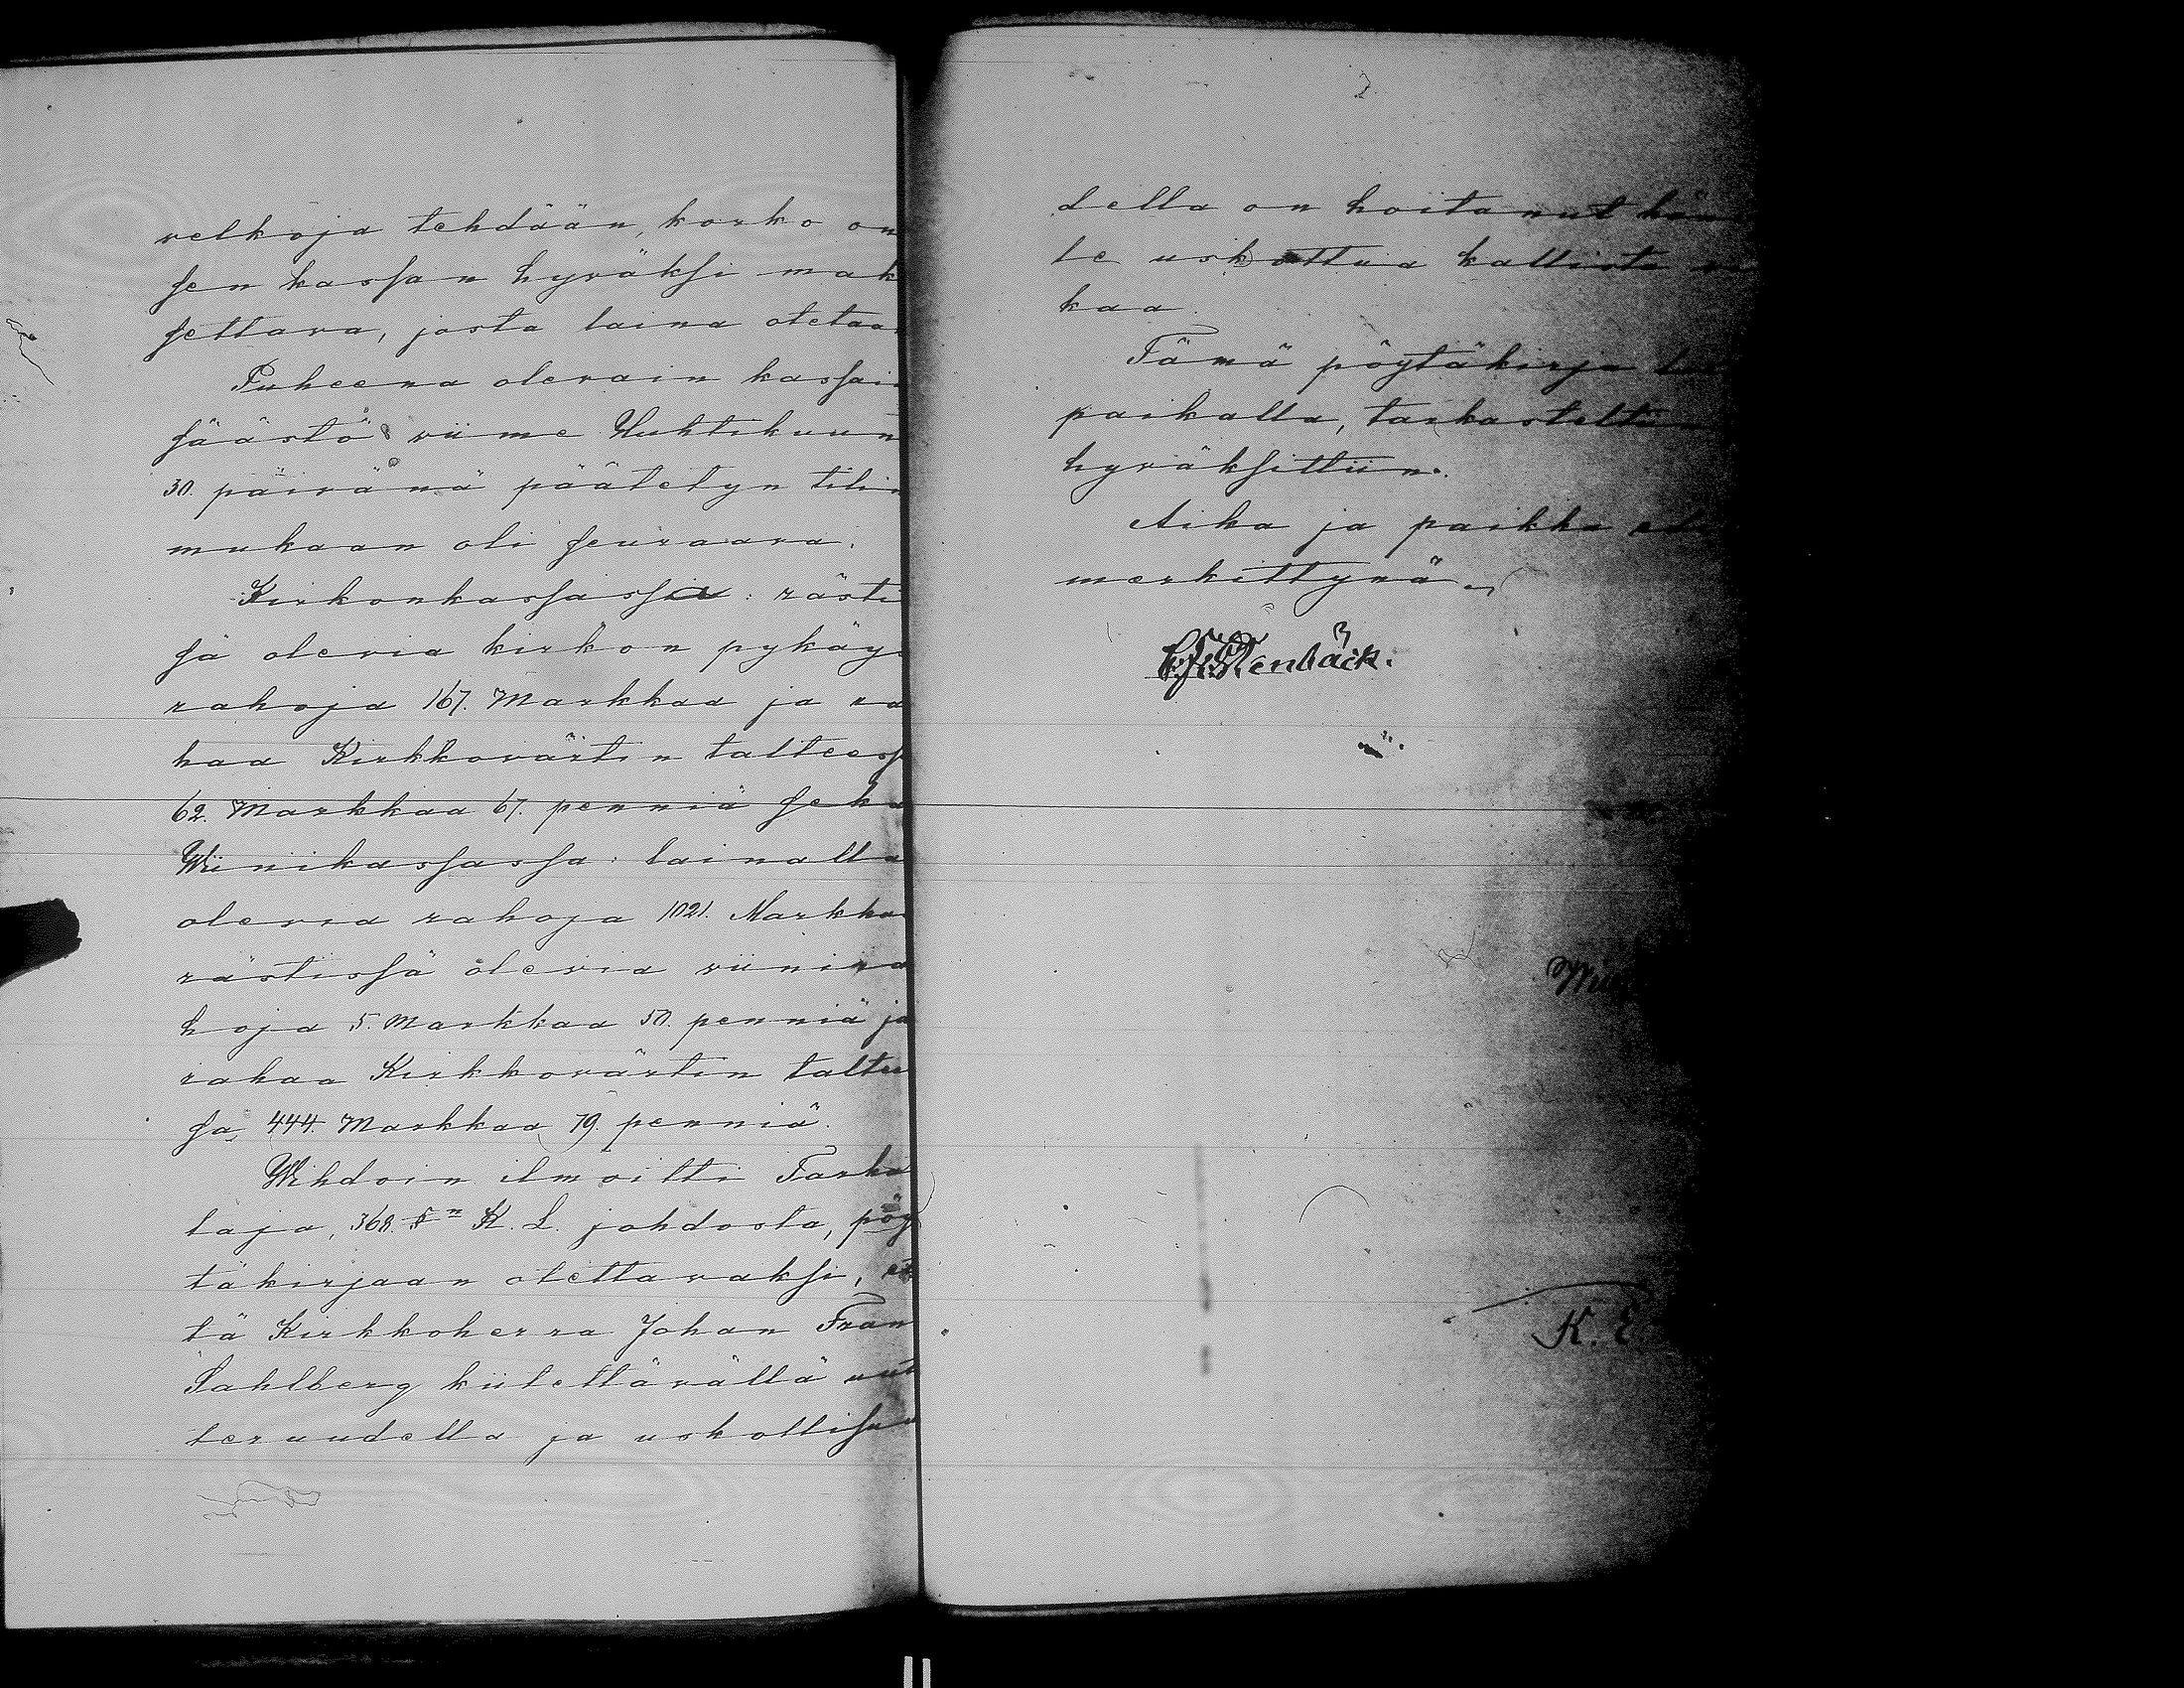 velkoja tehdään, korko on
sen kassan hyväksi mak
settava, josta laina otetaan
Puheena olevain kassain
säästö viime Huhtikuun
30. päivänä päätetyn tilin
mukaan oli seuraava.
Kirkonkassassa: rästis
sä olevia kirkon pykäys
rahoja 167. Markkaa ja ra
haa Kirkkovärtin talteessa
62. Markkaa 67. penniä sekä
Wiinikassassa: lainalla
olevia rahoja 1021. Markkaa
rästissä olevia viinira
hoja 5. Markkaa 50. penniä ja
rahaa Kirkkovärtin taltees
sa, 444. Markkaa 79. penniä.
Wihdoin ilmoitti Tarkas
taja, 368. §n K. L. johdosta, pöy
täkirjaan otettavaksi, et
tä Kirkkoherra Johan Frans
Sahlberg kiitettävällä uut
teruudella ja uskollisuu
della on hoitanut hänel
le uskottua kallista vir
kaa.
Tämä pöytäkirja
paikalla, tarkasteltiin
hyväksittiin.
Aika ja paikka
merkittynä.
Stenbäck.
K. E